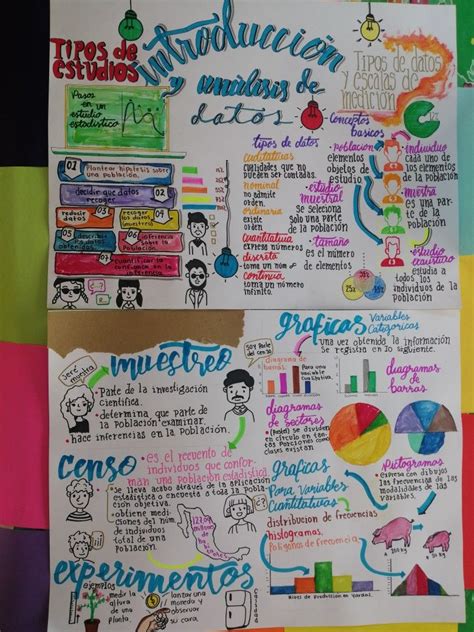 introducción
y análisis de
datos
Tipos de
estudios
Pasos
en un
estudio
estadístico
Tipos de datos
y escalas de
medición
01 Plantear hipótesis sobre
una población.
02 decidir que datos
recoger
03 reducir datos
04 recoger
los datos
05 describir
los datos
obtenidos
06 inferencia
sobre la
población
07 cuantificar la
confianza en la
inferencia
tipos de datos
cualitativas
cualidades que no
pueden ser contadas.
nominal
no admite
orden.
ordinaria
existe
orden.
cuantitativa
tienen números
discreta
toma un núm
continua
toma un número
infinito.
Conceptos
básicos
• población
elementos
objetos de
estudio
• estudio
muestral
Se selecciona
solo una parte
de la población
• tamaño
es el número
de elementos
individuo
cada uno de
los elementos
de la población
muestra
es una par-
te de la
población
• estudio
exhaustivo
estudia a
todos los
individuos de
la población
muestreo
Seré
molita
• Parte de la investigación
científica.
• determina que parte de
la población examinar.
hace inferencias en la Población.
Soy Parte
del censo
censo
• es el recuento de
individuos que confor-
man una población estadística.
• Se lleva acabo através de la aplicación
estadística o encuesta a toda la Pobla-
ción objetiva.
• obtiene medi-
ciones del núm
de individuos
total de una
Población.
experimentos
ejemplos
medir la
altura de
una planta
lanzar una
moneda y
observar
la cara
Calidad
graficas
Variables
Categóricas
una vez obtenida la información
se registra en lo siguiente.
diagrama de
barras.
Para una
variable
cualitativa.
diagramas de
barras
diagramas
de sectores
(Pastel) se dividen
en círculo en tan-
tas porciones como
clases existan
Pictogramas
• expresa con dibujos
las frecuencias de
las modalidades de las
variables.
graficas
Para Variables
Cuantitativas
distribución de frecuencias
histogramas.
Polígonos de frecuencia